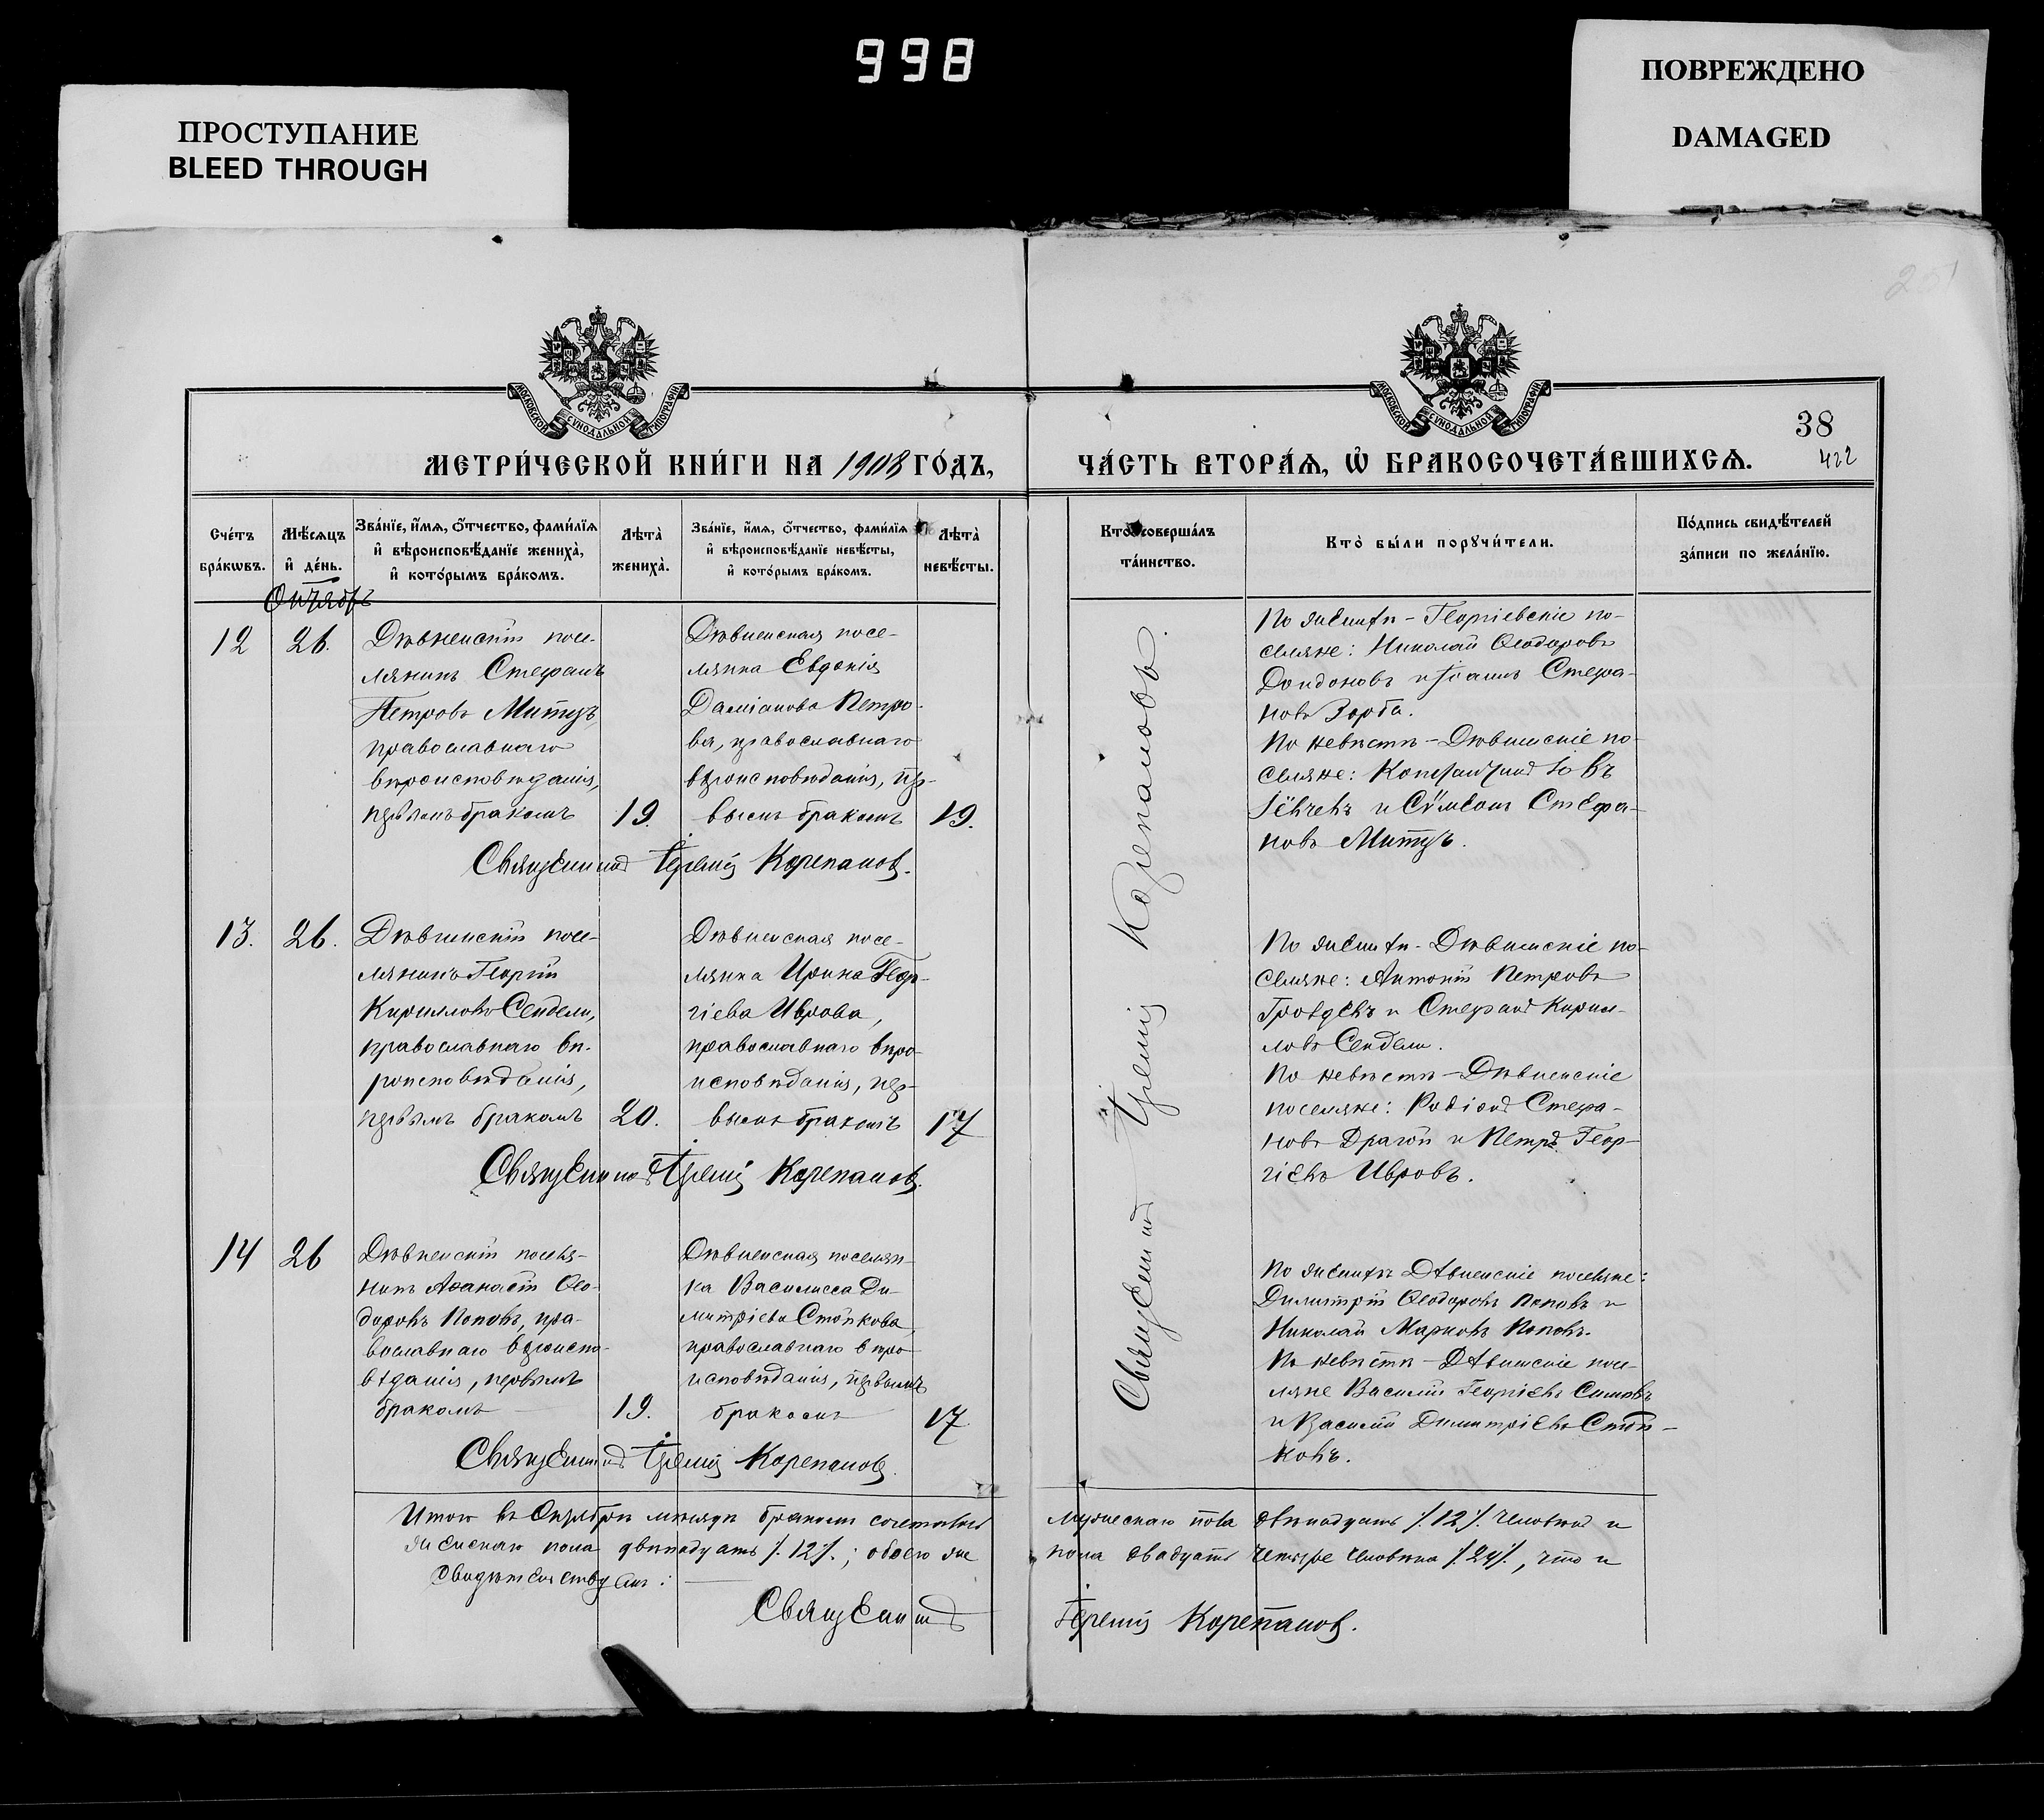 998
ПРОСТУПАНИЕ
BLEED THROUGH
ПОВРЕЖДЕНО
DAMAGED
201
МОСКОВСКОЙ СѴНОДАЛЬНОЙ ТИПОГРАФІИ
МОСКОВСКОЙ СѴНОДАЛЬНОЙ ТИПОГРАФІИ
38
422
МЕТРИ́ЧЕСКОЙ КНИ́ГИ НА 1908 ГО́ДЪ,
ЧА́СТЬ ВТОРА́Я, Ѡ БРАКОСОЧЕТА́ВШИХСЯ.
Сче́тъ
бра́кѡвъ.
Мѣ́сяцъ
и де́нь.
Зва́нїе, и́мя, ѻ́тчество, фами́лїя
и вѣроисповѣ́данїе жениха̀,
и кото́рымъ бра́комъ.
Лѣта̀
жениха̀.
Зва́нїе, и́мя, ѻ́тчество, фами́лїя
и вѣроисповѣ́данїе невѣ́сты,
и кото́рымъ бра́комъ.
Лѣта̀
невѣ́сты.
Кто̀ соверша́лъ
та́инство.
Кто̀ бы́ли порꙋчи́тели.
По́дпись свидѣ́телей
за́писи по жела́нїю.
Октябрь
12
26.
Дювненскій посе-
лянинъ Стефанъ
Петровъ Митузъ
православнаго
вѣроисповѣданія,
первымъ бракомъ
19.
Дювненская посе-
лянка Евдокія
Даміанова Петро-
ва, православнаго
вѣроисповѣданія, пер-
вымъ бракомъ
19.
Священникъ Іеремій Корепановъ.
Священникъ Іеремій Корепановъ.
По женихѣ - Георгіевскіе по-
селяне: Николай Ѳеодоровъ
Дондоновъ и Іоаннъ Стефа-
новъ Зорба.
По невѣстѣ - Дювненскіе по-
селяне: Константинъ
и Сѵмеонъ Стефа-
новъ Митузъ.
13.
26.
Дювненскій посе-
лянинъ Георгій
Кирилловъ Сендели,
православнаго вѣ-
роисповѣданія,
первымъ бракомъ
20.
Дювненская посе-
лянка Ирина Геор-
гіева Иврова,
православнаго вѣро-
исповѣданія, пер-
вымъ бракомъ
17
Священникъ Іеремій Корепановъ.
По женихѣ - Дювненскіе по-
селяне: Антоній Петровъ
и Стефанъ Кирил-
ловъ Сендели.
По невѣстѣ - Дювненскіе
поселяне: Родіонъ Стефа-
новъ Драгой и Петръ Геор-
гіевъ Ивровъ.
14
26
Дювненскій поселя-
нинъ Аѳанасій Ѳео-
доровъ Поповъ, пра-
вославнаго вѣроиспо-
вѣданія, первымъ
бракомъ
19.
Дювненская поселян-
ка Василисса Ди-
митріева Стойкова,
православнаго вѣро-
исповѣданія, первымъ
бракомъ
17.
Священникъ Іеремій Корепановъ.
По женихѣ Дювненскіе поселяне:
Димитрій Ѳеодоровъ Поповъ и
Николай Марковъ Поповъ.
По невѣстѣ - Дювненскіе посе-
ляне Василій Георгіевъ Симовъ
и Василій Димитріевъ Стой-
ковъ.
Итого въ Октябрѣ мѣсяцѣ бракомъ сочетались мужескаго пола двѣнадцать /.12/. человѣкъ и
женскаго пола двѣнадцать /.12/.; обоего же пола двадцать четыре человѣка /.24/., что и
свидѣтельствуемъ:
Священникъ Іеремій Корепановъ.